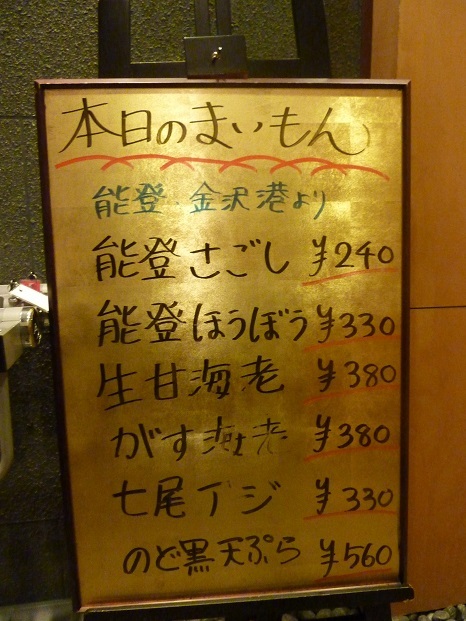 本日のまいもん
能登 金沢港より
能登さごし ¥240
能登ほうぼう ¥330
生甘海老 ¥380
がす海老 ¥380
七尾アジ ¥330
のど黒天ぷら ¥560